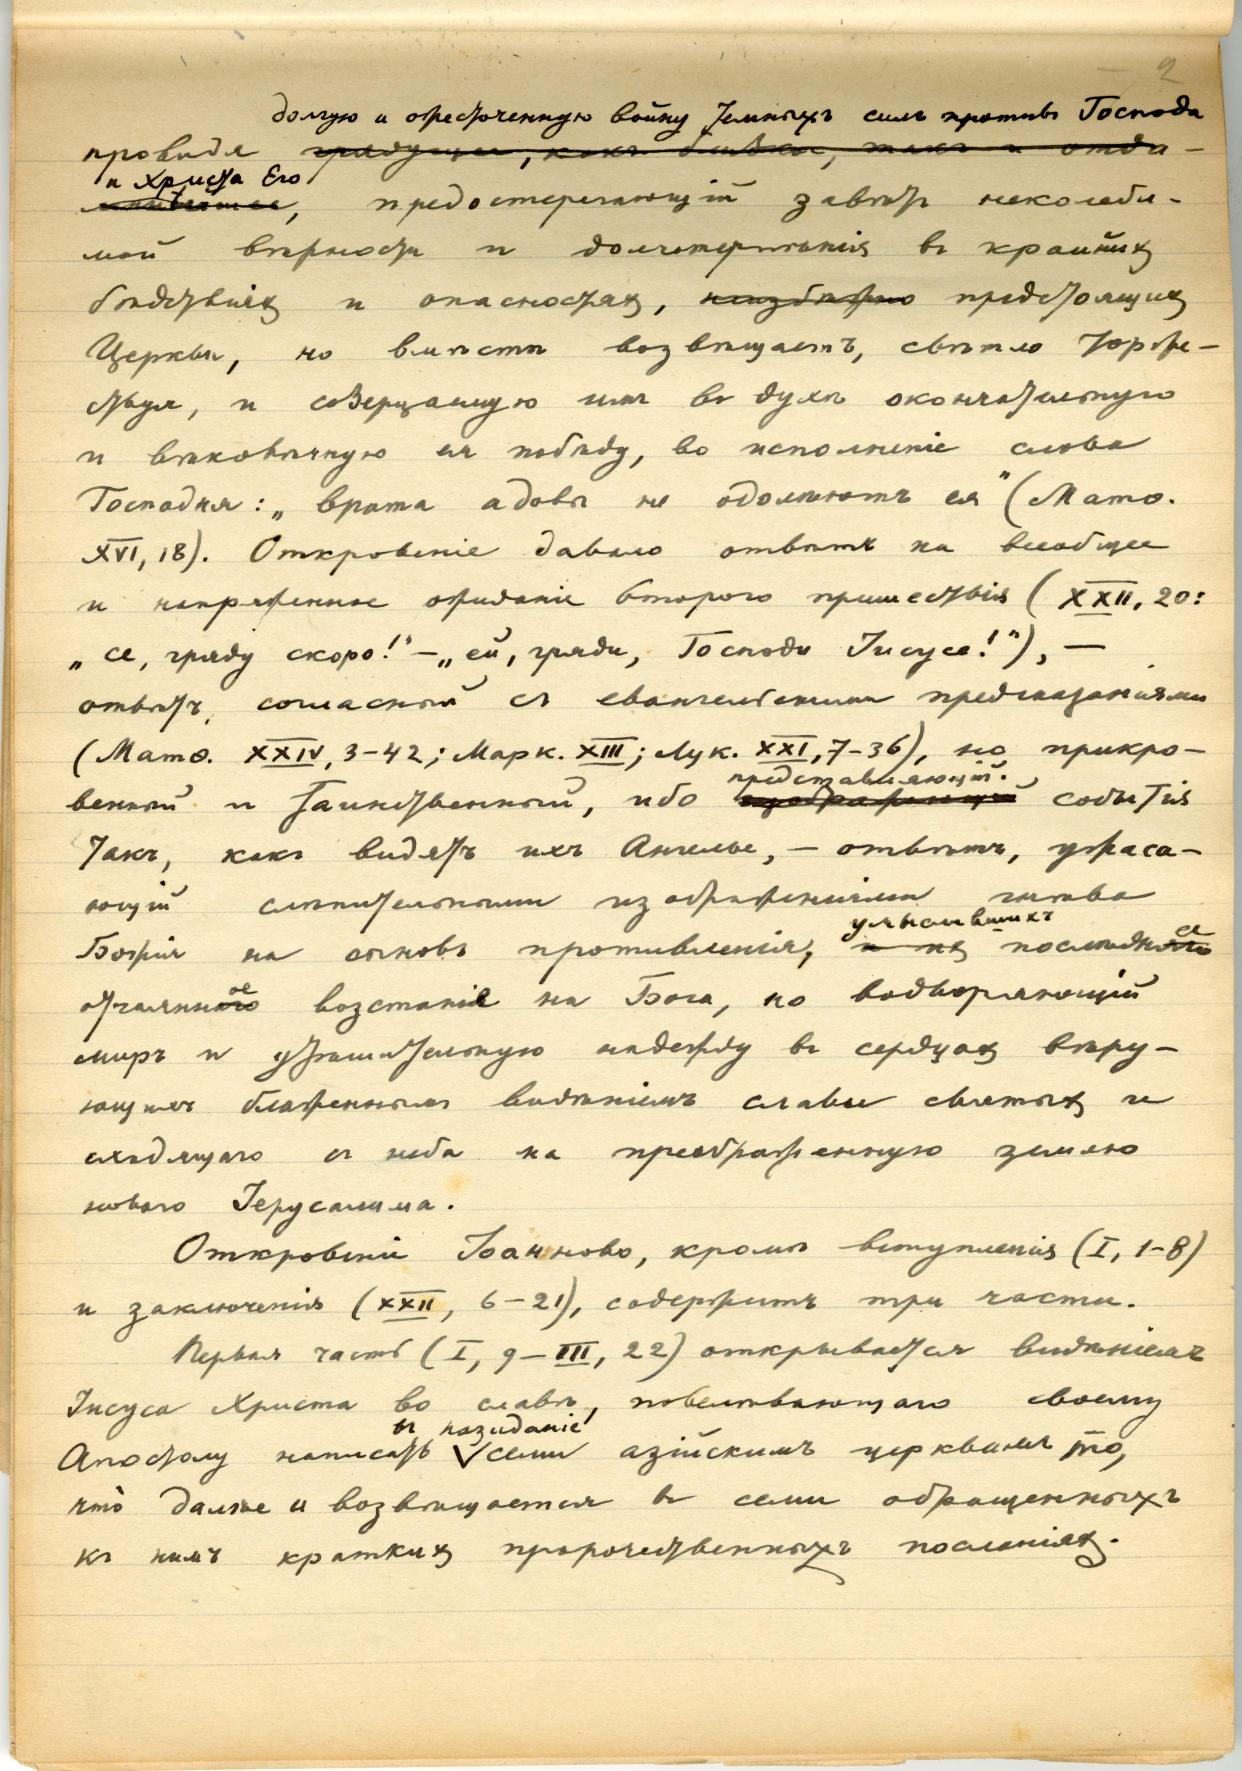 2
долгую и ожесточенную войну темныхъ силъ противъ Господа
провидя грядущее, какъ близкое, такъ и отда-
и Христа Его
леннѣйшее, предостерегающій завѣтъ неколеби-
мой вѣрности и долготерпѣнія въ крайнихъ
бѣдствіяхъ и опасностяхъ, неизбѣжно предстоящихъ
Церкви, но вмѣстѣ возвѣщаетъ, свѣтло торже-
ствуя, и созерцаемую имъ въ духѣ окончательную
и вѣковѣчную ея побѣду, во исполненіе слова
Господня: „врата адовы не одолѣютъ ея" (Матѳ.
XVI, 18). Откровеніе давало отвѣтъ на всеобщее
и напряженное ожиданіе второго пришествія (XXII, 20:
„се, гряду скоро!" – „ей, гряди, Господи Іисусе!"), —
отвѣтъ, согласный съ евангельскими предсказаніями
(Матѳ. XXIV, 3-42; Марк. XIII; Лук. XXI, 7-36), но прикро-
представляющій
венный и таинственный, ибо изображающій событія
такъ, какъ видятъ ихъ Ангелы, – отвѣтъ, ужаса-
ющій слѣпительными изображеніями гнѣва
умыслившихъ
Божія на сыновъ противленія, и ихъ послѣднее
отчаянное возстаніе на Бога, но водворяющій
миръ и утѣшительную надежду въ сердцахъ вѣру-
ющихъ блаженнымъ видѣніемъ славы святыхъ и
сходящаго съ неба на преображенную землю
новаго Іерусалима.
Откровеніе Іоанново, кромѣ вступленія (I, 1-8)
и заключенія (XXII, 6-21), содержитъ три части.
Первая часть (I, 9 – III, 22) открывается видѣніемъ
Іисуса Христа во славѣ, повелѣвающаго своему
въ назиданіе
Апостолу написать семи азійскимъ церквамъ то,
что далѣе и возвѣщается въ семи обращенныхъ
къ нимъ краткихъ пророчественныхъ посланіяхъ.